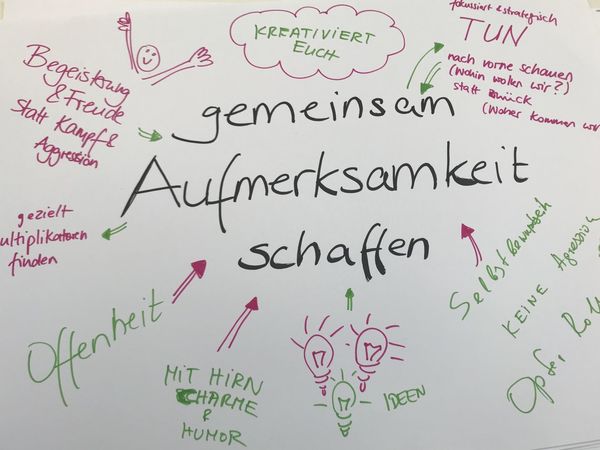 KREATIVIERT
EUCH
fokussiert & strategisch
TUN
nach vorne schauen
(Wohin wollen wir?)
statt zurück
(Woher kommen wir
Begeisterung
& Freude
statt Kampf &
Aggression
gemeinsam
Aufmerksamkeit
schaffen
gezielt
ultiplikatoren
finden
Offenheit
MIT HIRN
CHARME
&
HUMOR
IDEEN
Selbstbewusstsein
KEINE Agression
Opfer Roll